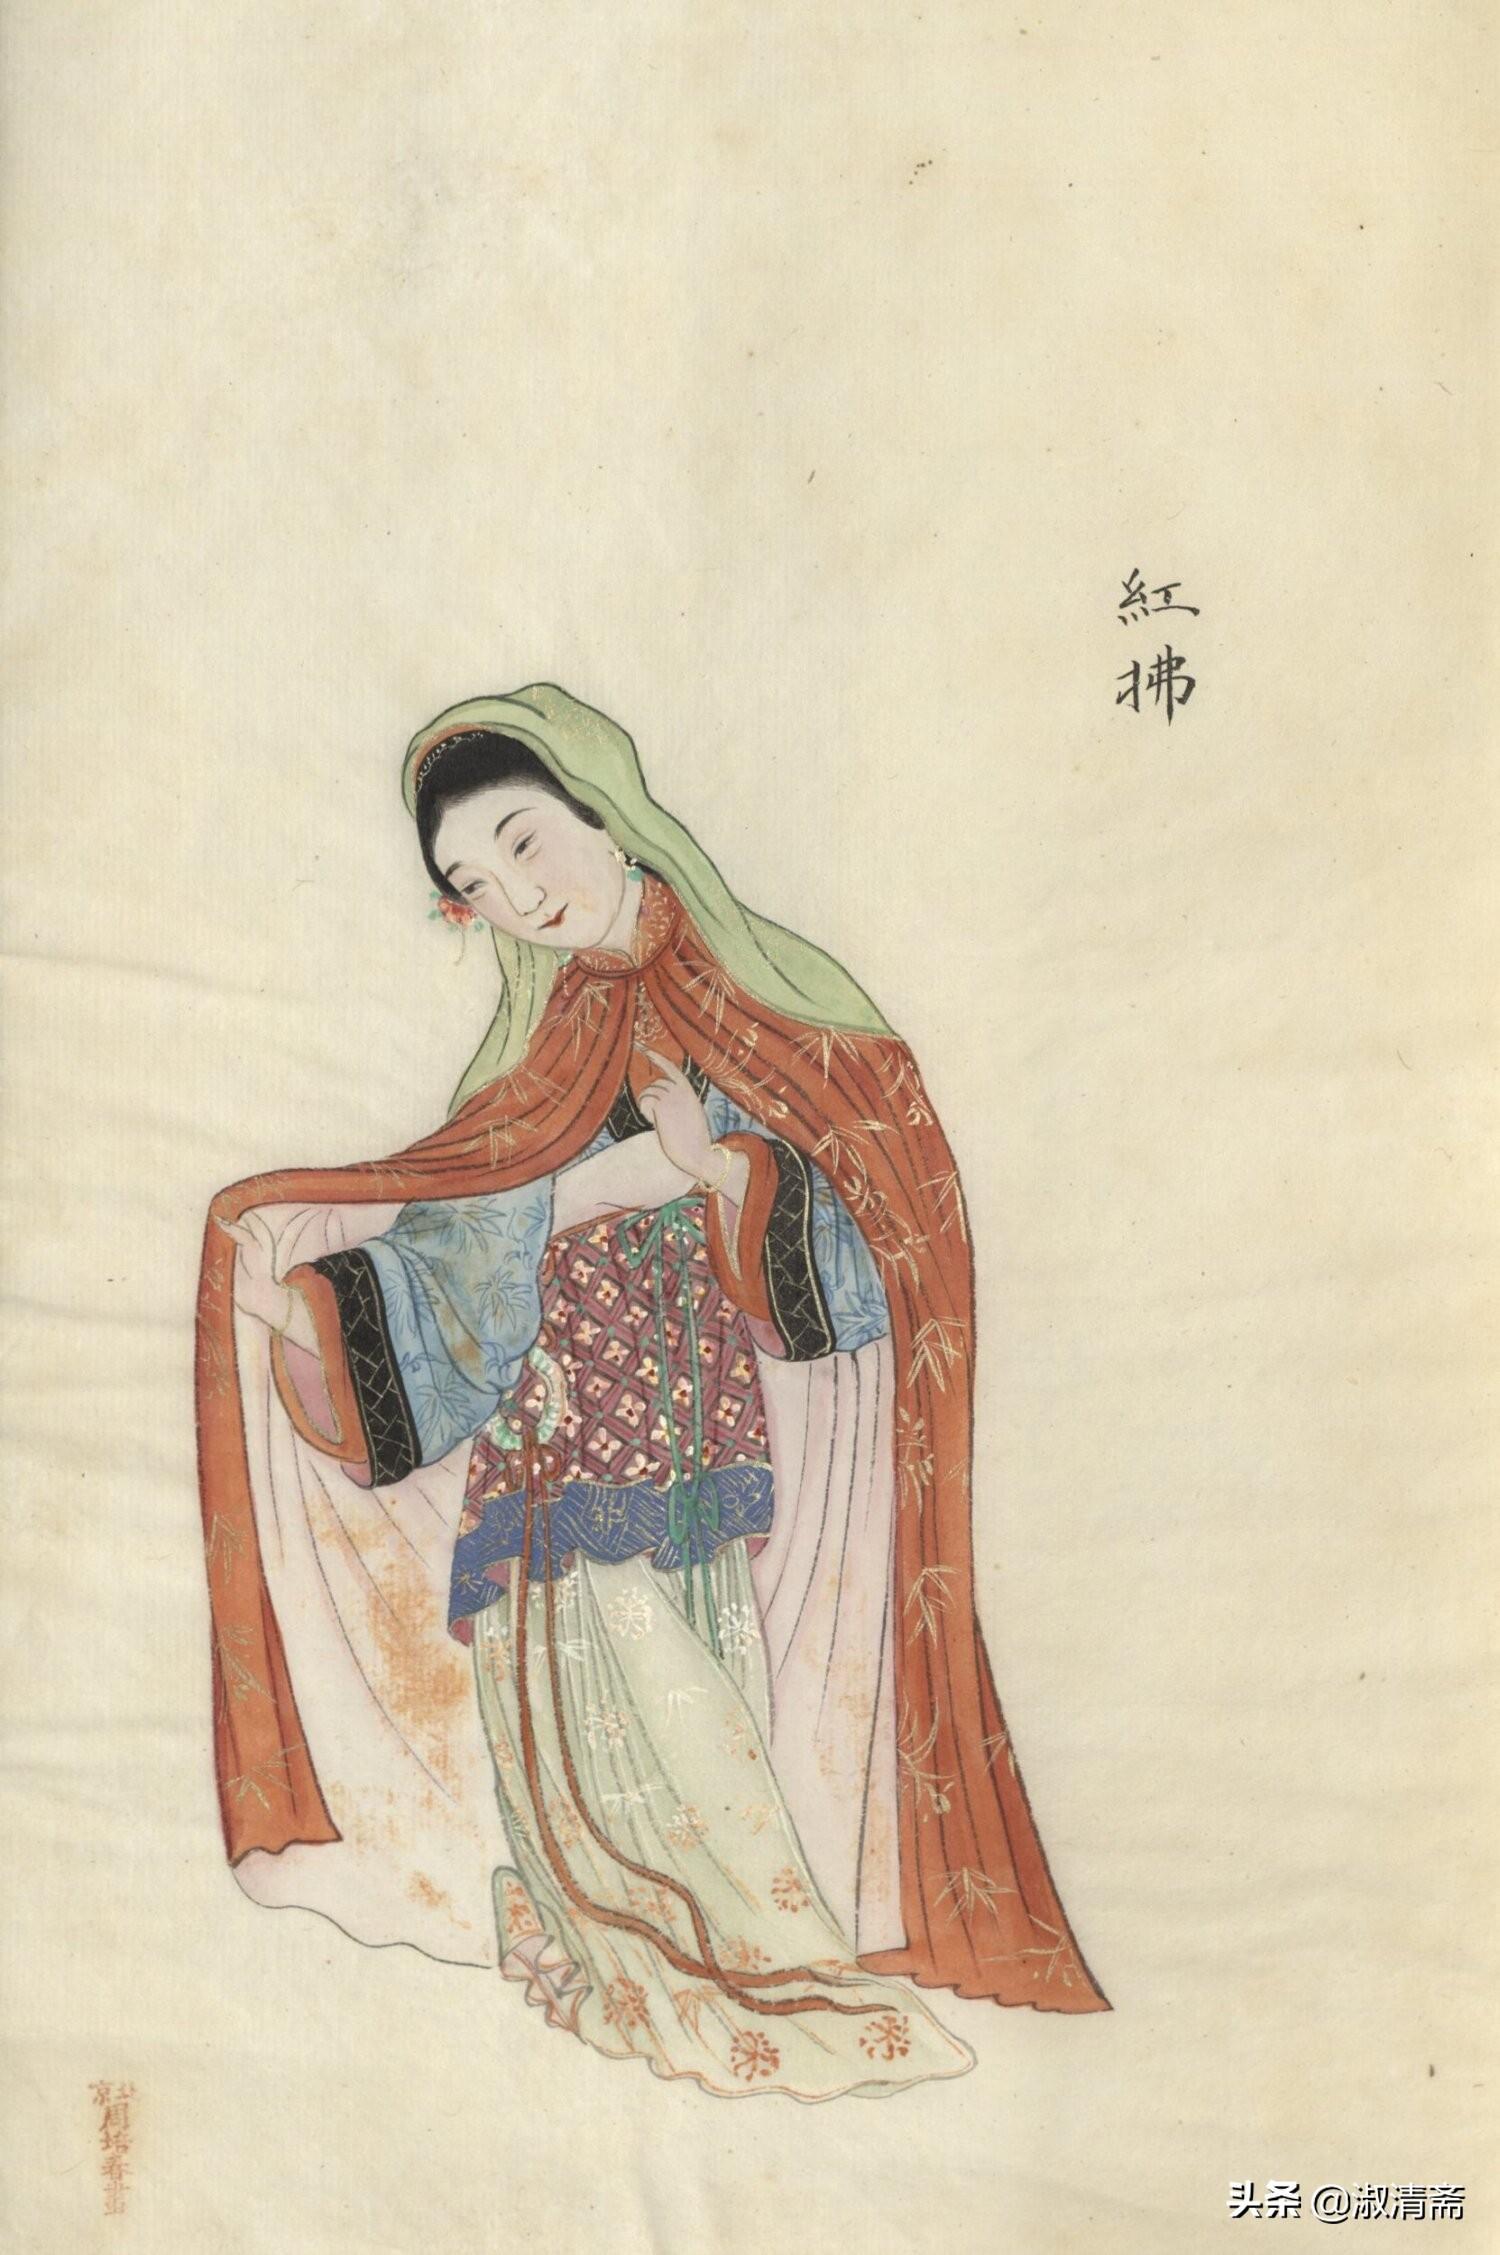 紅拂
北京周培春畫
头条 @淑清斋